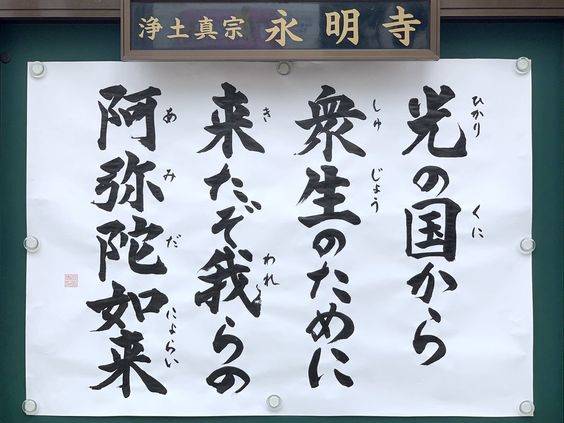 浄土真宗 永明寺
光の国から
衆生のために
来たぞ我らの
阿弥陀如来
ひかり
くに
しゅ
じょう
き
われ
あ
み
だ
にょらい